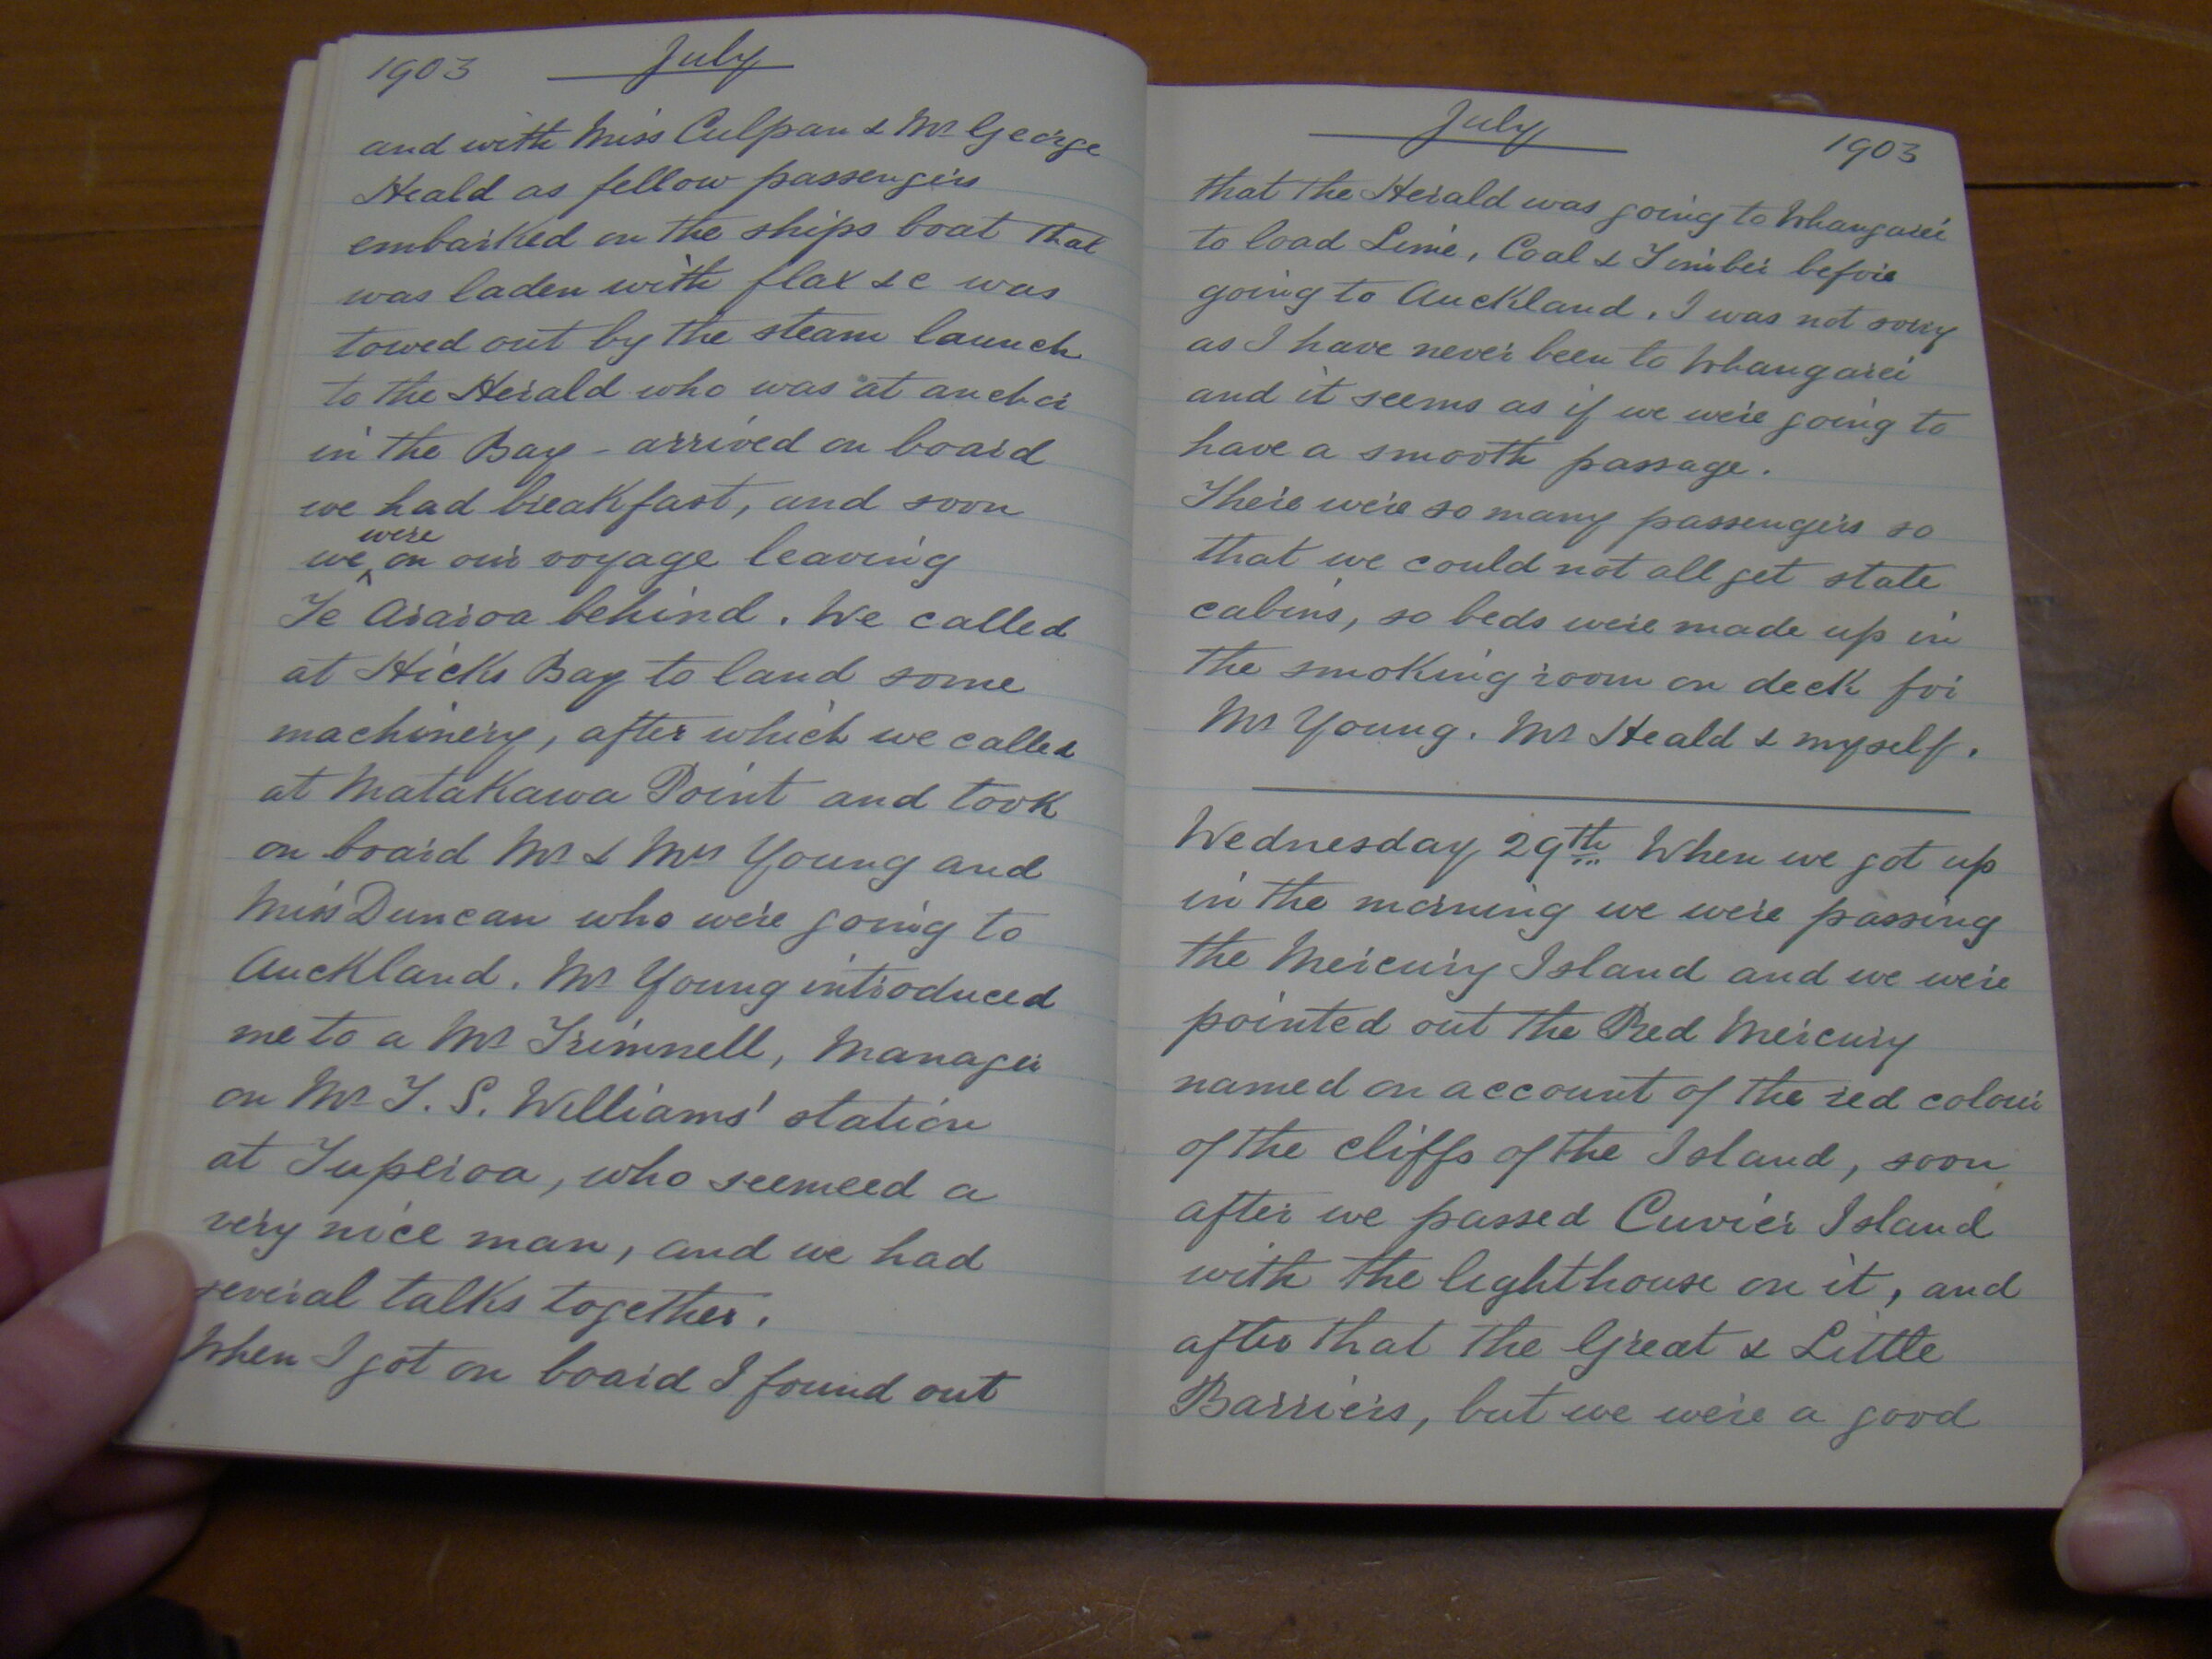 1903 July
and with Miss Culpan & Mr George
Heald as fellow passengers
embarked on the ships boat that
was laden with flax &c was
towed out by the steam launch
to the Herald who was at anchor
in the Bay - arrived on board
we had breakfast, and soon
we were on our voyage leaving
Te Araroa behind. We called
at Hicks Bay to land some
machinery, after which we called
at Matakawa Point and took
on board Mr & Mrs Young and
Miss Duncan who were going to
Auckland. Mr Young introduced
me to a Mr Trimnell, Manager
on Mr T. S. Williams' station
at Tuperoa, who seemeed a
very nice man, and we had
several talks together.
When I got on board I found out
July 1903
that the Herald was going to Whangarei
to load Lime, Coal & Timber before
going to Auckland. I was not sorry
as I have never been to Whangarei
and it seems as if we were going to
have a smooth passage.
There were so many passengers so
that we could not all get state
cabins, so beds were made up in
the smoking room on deck for
Mr Young. Mr Heald & myself.
Wednesday 29th When we got up
in the morning we were passing
the Mercury Island and we were
pointed out the Red Mercury
named on account of the red colour
of the cliffs of the Island, soon
after we passed Cuvier Island
with the lighthouse on it, and
after that the Great & Little
Barriers, but we were a good